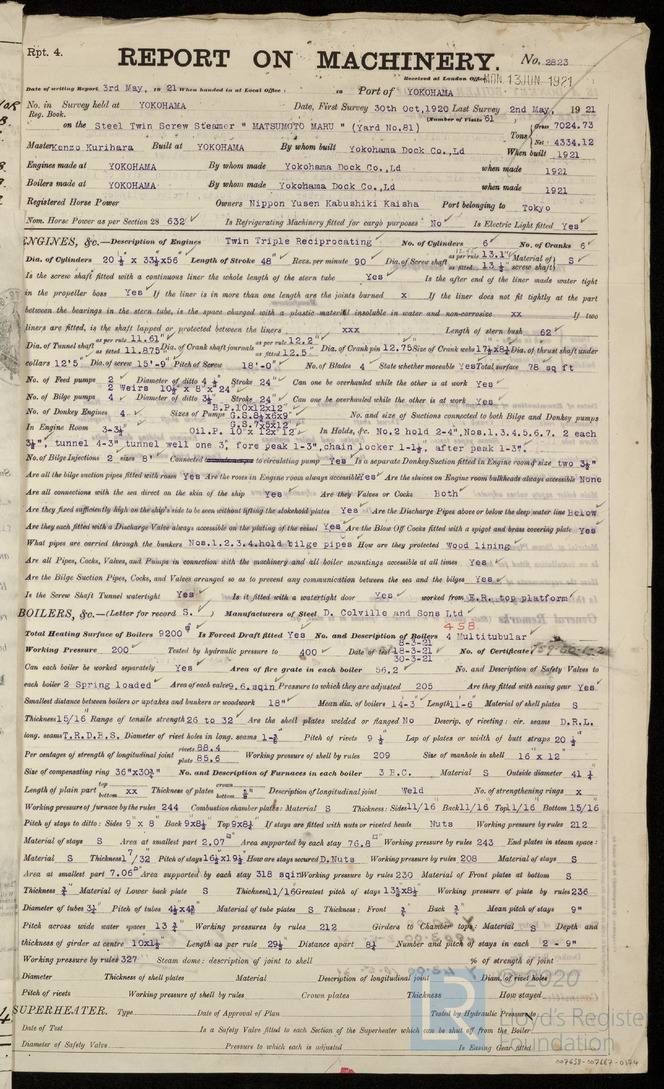 Rpt. 4.
REPORT ON MACHINERY.
No. 2823
Received at London Office MON. 13 JUN. 1921
Date of writing Report 3rd May, 19 21 When handed in at Local Office 19 Port of YOKOHAMA
No. in Survey held at YOKOHAMA Date, First Survey 30th Oct, 1920 Last Survey 2nd May, 19 21
Reg. Book. (Number of Visits 61
on the Steel Twin Screw Steamer " MATSUMOTO MARU " (Yard No.81) Tons Gross 7024.73 Net 4334.12
Master Kenzo Kurihara Built at YOKOHAMA By whom built Yokohama Dock Co.,Ld When built 1921
Engines made at YOKOHAMA By whom made Yokohama Dock Co.,Ld when made 1921
Boilers made at YOKOHAMA By whom made Yokohama Dock Co.,Ld when made 1921
Registered Horse Power Owners Nippon Yusen Kabushiki Kaisha Port belonging to Tokyo
Nom. Horse Power as per Section 28 632 Is Refrigerating Machinery fitted for cargo purposes No Is Electric Light fitted Yes
ENGINES, &c.—Description of Engines Twin Triple Reciprocating No. of Cylinders 6 No. of Cranks 6
Dia. of Cylinders 20½ x 33½x56 Length of Stroke 48" Revs. per minute 90 Dia. of Screw shaft as per rule 13.1" as fitted 13½" Material of screw shaft) S
Is the screw shaft fitted with a continuous liner the whole length of the stern tube Yes Is the after end of the liner made water tight
in the propeller boss Yes If the liner is in more than one length are the joints burned x If the liner does not fit tightly at the part
between the bearings in the stern tube, is the space charged with a plastic material insoluble in water and non-corrosive xx If two
liners are fitted, is the shaft lapped or protected between the liners xxx Length of stern bush 62"
Dia. of Tunnel shaft as per rule 11.61" as fitted 11.875" Dia. of Crank shaft journals as per rule 12.2" as fitted 12.5" Dia. of Crank pin 12.75 Size of Crank webs 17½x8½ Dia. of thrust shaft under
collars 12"5 Dia. of screw 15'-9" Pitch of Screw 18'-0" No. of Blades 4 State whether moveable Yes Total surface 78 sq ft
No. of Feed pumps 2 Diameter of ditto 4½ Stroke 24" Can one be overhauled while the other is at work Yes
2 Weirs 10½"x 8"x 24"
No. of Bilge pumps 4 Diameter of ditto 3½ Stroke 24" Can one be overhauled while the other is at work Yes
B.P.10x12x12
No. of Donkey Engines 4 Sizes of Pumps G.S.8½x6x9" No. and size of Suctions connected to both Bilge and Donkey pumps
G.S.7x5x12
In Engine Room 3-3½" Oil.P. 10 x 12x 12" In Holds, &c. No.2 hold 2-4",Nos.1.3.4.5.6.7. 2 each
3½", tunnel 4-3", tunnel well one 3", fore peak 1-3",chain locker 1-1½, after peak 1-3".
No. of Bilge Injections 2 sizes 8" Connected to circulating pump Yes Is a separate Donkey Suction fitted in Engine room & size two 3½"
Are all the bilge suction pipes fitted with roses Yes Are the roses in Engine room always accessible Yes Are the sluices on Engine room bulkheads always accessible None
Are all connections with the sea direct on the skin of the ship Yes Are they Valves or Cocks Both
Are they fixed sufficiently high on the ship's side to be seen without lifting the stokehold plates Yes Are the Discharge Pipes above or below the deep water line Below
Are they each fitted with a Discharge Valve always accessible on the plating of the vessel Yes Are the Blow Off Cocks fitted with a spigot and brass covering plate Yes
What pipes are carried through the bunkers Nos.1.2.3.4.hold bilge pipes How are they protected Wood lining
Are all Pipes, Cocks, Valves, and Pumps in connection with the machinery and all boiler mountings accessible at all times Yes
Are the Bilge Suction Pipes, Cocks, and Valves arranged so as to prevent any communication between the sea and the bilges Yes
Is the Screw Shaft Tunnel watertight Yes Is it fitted with a watertight door Yes worked from E.R. top platform
BOILERS, &c.—(Letter for record S. ) Manufacturers of Steel D. Colville and Sons Ltd
438.
Total Heating Surface of Boilers 9200 Is Forced Draft fitted Yes No. and Description of Boilers 4 Multitubular
Working Pressure 200 Tested by hydraulic pressure to 400 Date of test 8-3-21 18-3-21 30-3-21 No. of Certificate
Can each boiler be worked separately Yes Area of fire grate in each boiler 56.2 No. and Description of Safety Valves to
each boiler 2 Spring loaded Area of each valve 9.6.sqin Pressure to which they are adjusted 205 Are they fitted with easing gear Yes
Smallest distance between boilers or uptakes and bunkers or woodwork 18" Mean dia. of boilers 14-3 Length 11-6 Material of shell plates S
Thickness 15/16 Range of tensile strength 26 to 32 Are the shell plates welded or flanged No Descrip. of riveting: cir. seams D.R.L.
long. seams T.R.D.B.S. Diameter of rivet holes in long. seams Pitch of rivets 9¼ Lap of plates or width of butt straps 20¼
Per centages of strength of longitudinal joint rivets 88.4 plate 85.6 Working pressure of shell by rules 209 Size of manhole in shell 16 x 12"
Size of compensating ring 36"x30¾" No. and Description of Furnaces in each boiler 3 B.C. Material S Outside diameter 41¼
Length of plain part top bottom xx Thickness of plates crown bottom Description of longitudinal joint Weld No. of strengthening rings x
Working pressure of furnace by the rules 244 Combustion chamber plates: Material S Thickness: Sides 11/16 Back 11/16 Top 11/16 Bottom 15/16
Pitch of stays to ditto: Sides 9 x 8" Back 9x8½ Top 9x8½ If stays are fitted with nuts or riveted heads Nuts Working pressure by rules 212
Material of stays S Area at smallest part 2.07 Area supported by each stay 76.8 Working pressure by rules 243 End plates in steam space:
Material S Thickness 1 7/32 Pitch of stays 16½x19½ How are stays secured D.Nuts Working pressure by rules 208 Material of stays S
Area at smallest part 7.06 Area supported by each stay 318 sqin Working pressure by rules 230 Material of Front plates at bottom S
Thickness Material of Lower back plate S Thickness 11/16 Greatest pitch of stays 13½x8½ Working pressure of plate by rules 236
Diameter of tubes 3½ Pitch of tubes 4½x4¾ Material of tube plates S Thickness: Front ¾" Back ¾" Mean pitch of stays 9"
Pitch across wide water spaces 13¾ Working pressures by rules 212 Girders to Chamber tops: Material S Depth and
thickness of girder at centre 10x1½ Length as per rule 29½ Distance apart 8½ Number and pitch of stays in each 2 - 9"
Working pressure by rules 327 Steam dome: description of joint to shell % of strength of joint
Diameter Thickness of shell plates Material Description of longitudinal joint Diam. of rivet holes
Pitch of rivets Working pressure of shell by rules Crown plates Thickness How stayed
SUPERHEATER. Type Date of Approval of Plan Tested by Hydraulic Pressure to
Date of Test Is a Safety Valve fitted to each Section of the Superheater which can be shut off from the Boiler
Diameter of Safety Valve Pressure to which each is adjusted Is Easing Gear fitted
© 2020
Lloyd's Register
Foundation
007658-007667-0174